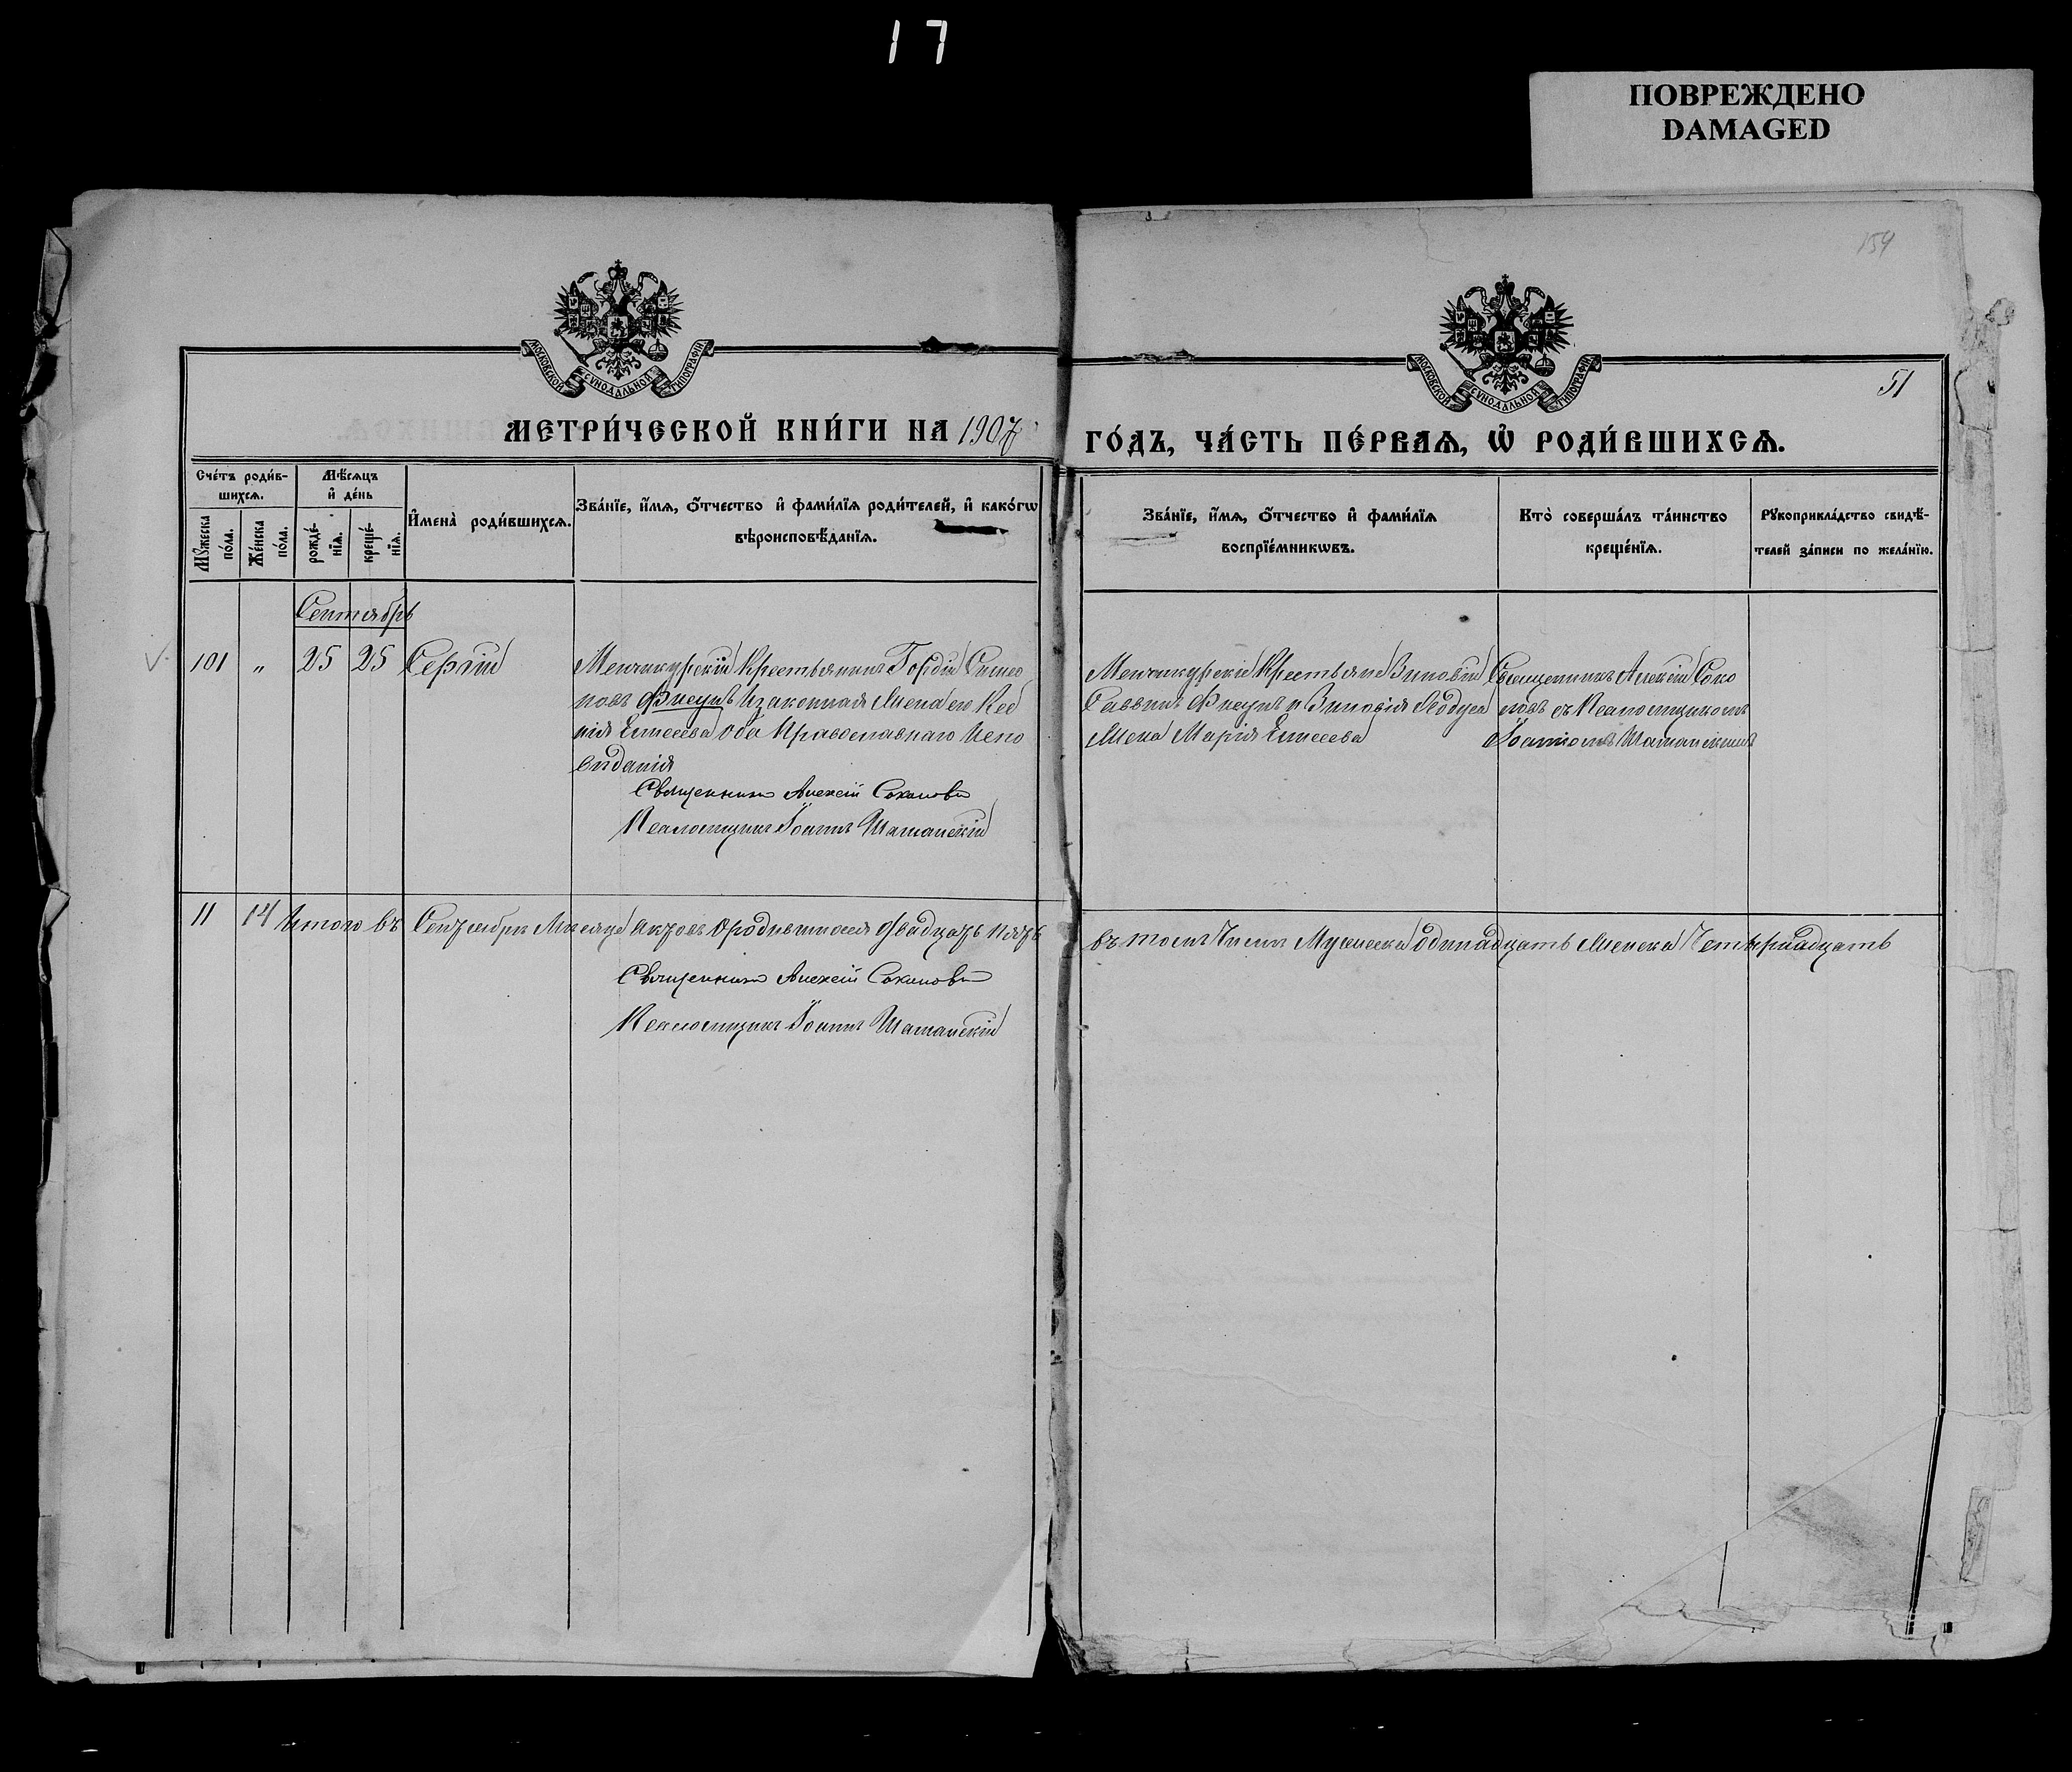 17
ПОВРЕЖДЕНО
DAMAGED
154
51
МОСКОВСКОЙ СѴНОДАЛЬНОЙ ТИПОГРАФІИ
МОСКОВСКОЙ СѴНОДАЛЬНОЙ ТИПОГРАФІИ
МЕТРИ́ЧЕСКОЙ КНИ́ГИ НА 1907
ГО́ДЪ, ЧА́СТЬ ПЕ́РВАѦ, Ѡ҆ РОДИ́ВШИХСѦ.
Сче́тъ роди́в-
шихсѧ.
Мꙋ́жеска
по́ла.
Же́нска
по́ла.
Мѣ́сѧцъ
и҆ де́нь
рожде́-
нїѧ.
креще́-
нїѧ.
И҆мена̀ роди́вшихсѧ.
Зва́нїе, и҆́мѧ, ѻ҆́тчество и҆ фами́лїѧ роди́телей, и҆ како́гѡ
вѣроисповѣ́данїѧ.
Зва́нїе, и҆́мѧ, ѻ҆́тчество и҆ фами́лїѧ
воспрїе́мникѡвъ.
Кто̀ соверша́лъ та́инство
креще́нїѧ.
Рꙋкоприкла́дство свидѣ́-
телей за́писи по жела́нїю.
Сентябрь
101 „ 25 25 Сергій
Менчикурскій Крестьянинъ Гордій Симео
новъ Фисунъ И законная Жена его Ксе
нія Елисеева оба Православнаго Испо
виданія
Священникъ Алексій Соколовъ
Псаломщикъ Іоаннъ Шаманскій
Менчикурскіе Крестьяне Зиновій
Саввинъ Фисунъ и Зиновія
Жена Марія Елисеева
Священникъ Алексій Соко
ловъ съ Псаломщикомъ
Іоанномъ Шаманскимъ
11 14 Итого въ Сентябрѣ Мѣсяцѣ Актовъ О родившихся двадцать пять
въ томъ Числѣ Мужеска одинадцать Женска Четырнадцать
Священникъ Алексій Соколовъ
Псаломщикъ Іоаннъ Шаманскій